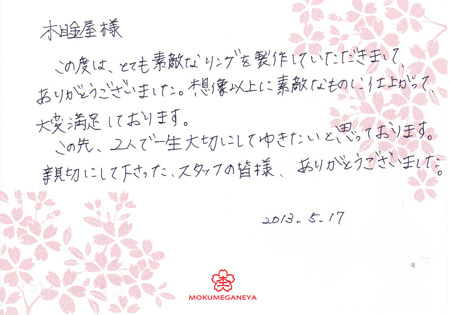 木目金屋様
この度は、とても素敵なリングを製作していただきまして、
ありがとうございました。想像以上に素敵なものに仕上がって、
大変満足しております。
この先、2人で一生大切にしてゆきたいと思っております。
親切にして下さった、スタッフの皆様、ありがとうございました。
2013.5.17
MOKUMEGANEYA